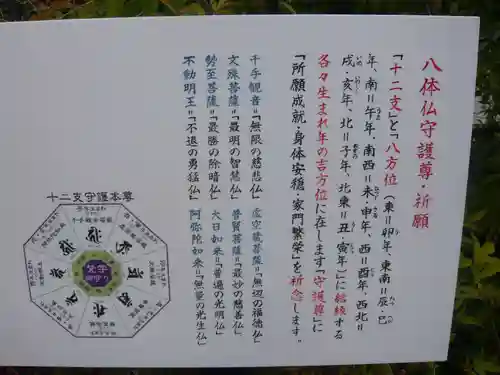 八体仏守護尊・祈願
「十二支」と「八方位（東＝卯年、東南＝辰・巳
年、南＝午年、南西＝未・申年、西＝酉年、西北＝
戌・亥年、北＝子年、北東＝丑・寅年）」に結縁する
各々生まれ年の吉方位に在します「守護尊」に
「所願成就・身体安穏・家門繁榮」を祈念します。
千手観音＝「無限の慈悲仏」
虚空蔵菩薩＝「無辺の福徳仏」
文殊菩薩＝「最明の智慧仏」
普賢菩薩＝「最妙の慈善仏」
勢至菩薩＝「最勝の除暗仏」
大日如来＝「普遍の光明仏」
不動明王＝「不退の勇猛仏」
阿弥陀如来＝「無量の光生仏」
十二支守護本尊